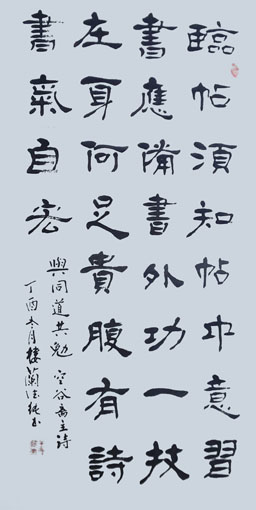 臨帖須知帖中意習
書應備書外功一技
在身何足貴腹有詩
書氣自宏
與同道共勉 空谷斋主詩
丁酉冬月樓蘭